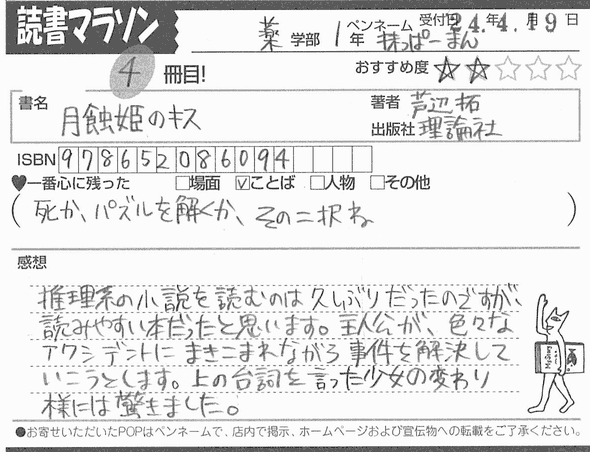 読書マラソン
薬 学部 1年 ペンネーム 抹っぱーまん 受付日 24年4.月19日
4 冊目! おすすめ度 ★★☆☆☆
書名 月蝕姫のキス 著者 芦辺拓
出版社 理論社
ISBN 9786652086094
♥一番心に残った □場面 ☑ことば □人物 □その他
(死か、パズルを解くか、その二択ね)
感想
推理系の小説を読むのは久しぶりだったのですが、
読みやすい本だったと思います。主人公が、色々な
アクシデントにまきこまれながら事件を解決して
いこうとします。上の台詞を言った少女の変わり
様には驚きました。
●お寄せいただいたPOPはペンネームで、店内で掲示、ホームページおよび宣伝物への転載をご了承ください。